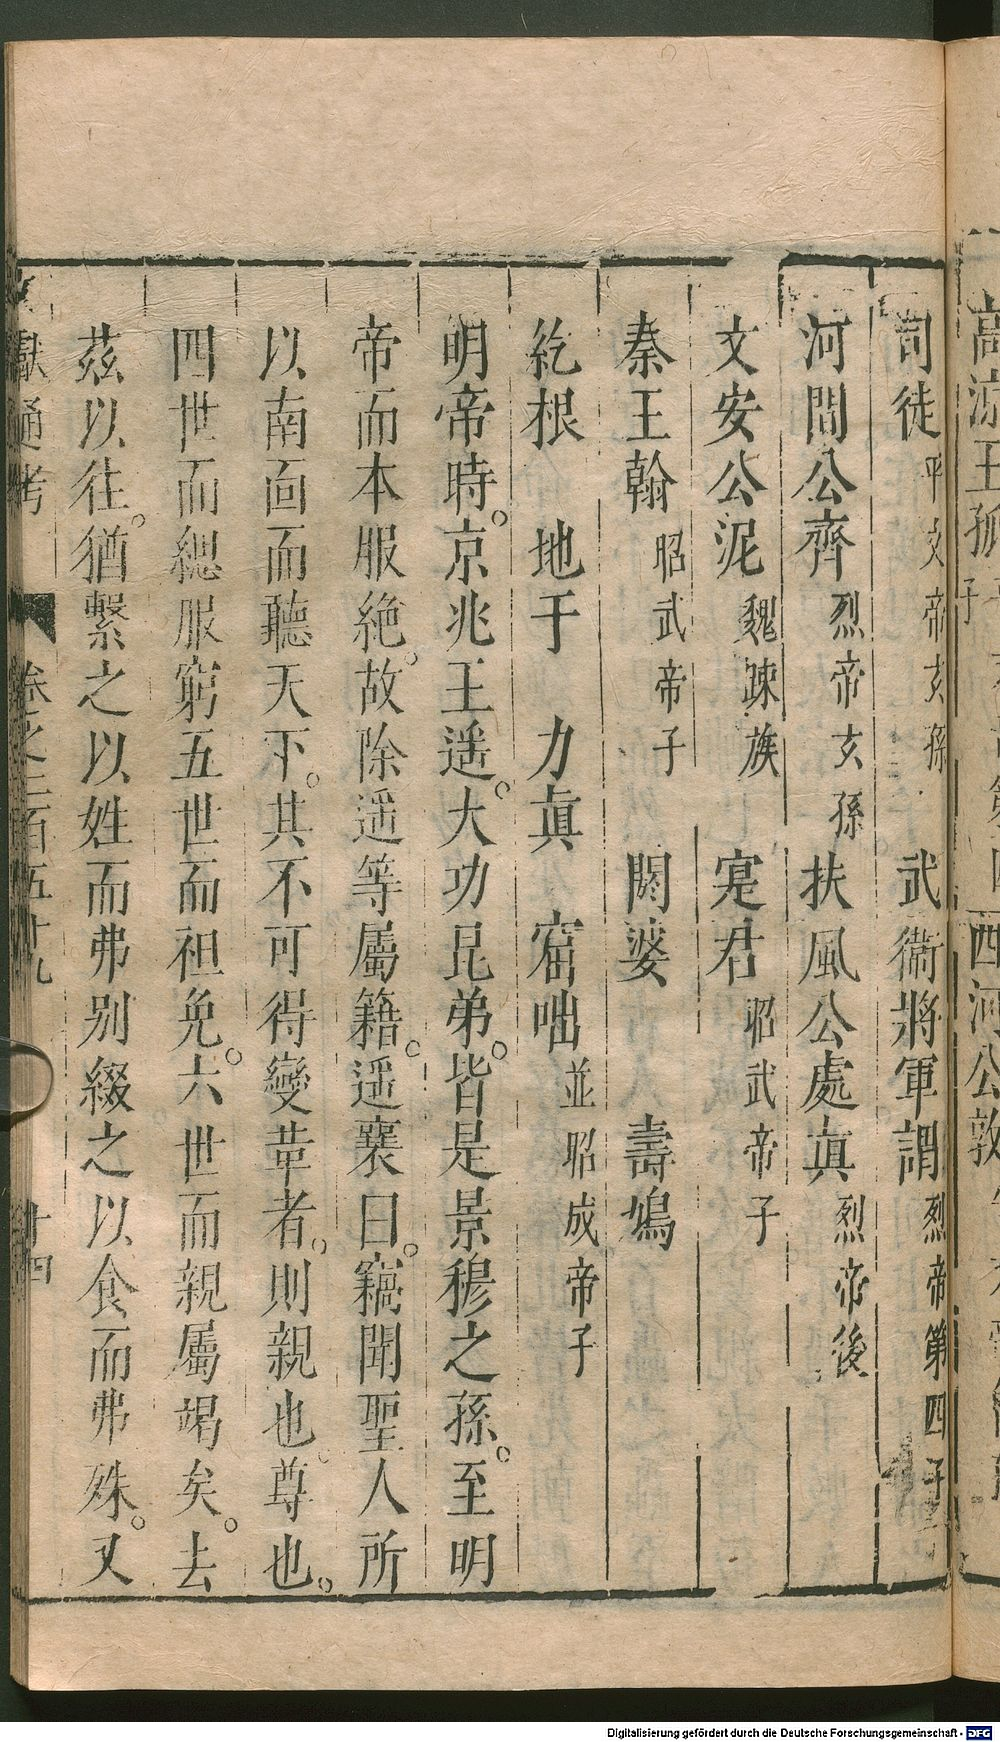 司徒平文帝玄孫 武衞將軍謂烈帝第四子
河間公齊烈帝玄孫 扶風公處眞烈帝後
文安公泥魏疎族 寔君昭武帝子
秦王翰昭武帝子 閼婆 壽鳩
紇根 地于 力眞 窟咄並昭成帝子
明帝時。京兆王遥。大功昆弟。皆是景穆之孫。至明
帝而本服絶。故除遥等屬籍。遥襄曰。竊聞聖人所
以南面而聽天下。其不可得變革者。則親也。尊也。
四世而緦服窮五世而袒免。六世而親屬竭矣。去
茲以往。猶繫之以姓而弗别綴之以食而弗殊。又
獻通考 卷之二百五十九 十四
高涼王孤 子
西河公敦
Digitalisierung gefördert durch die Deutsche Forschungsgemeinschaft - DFG